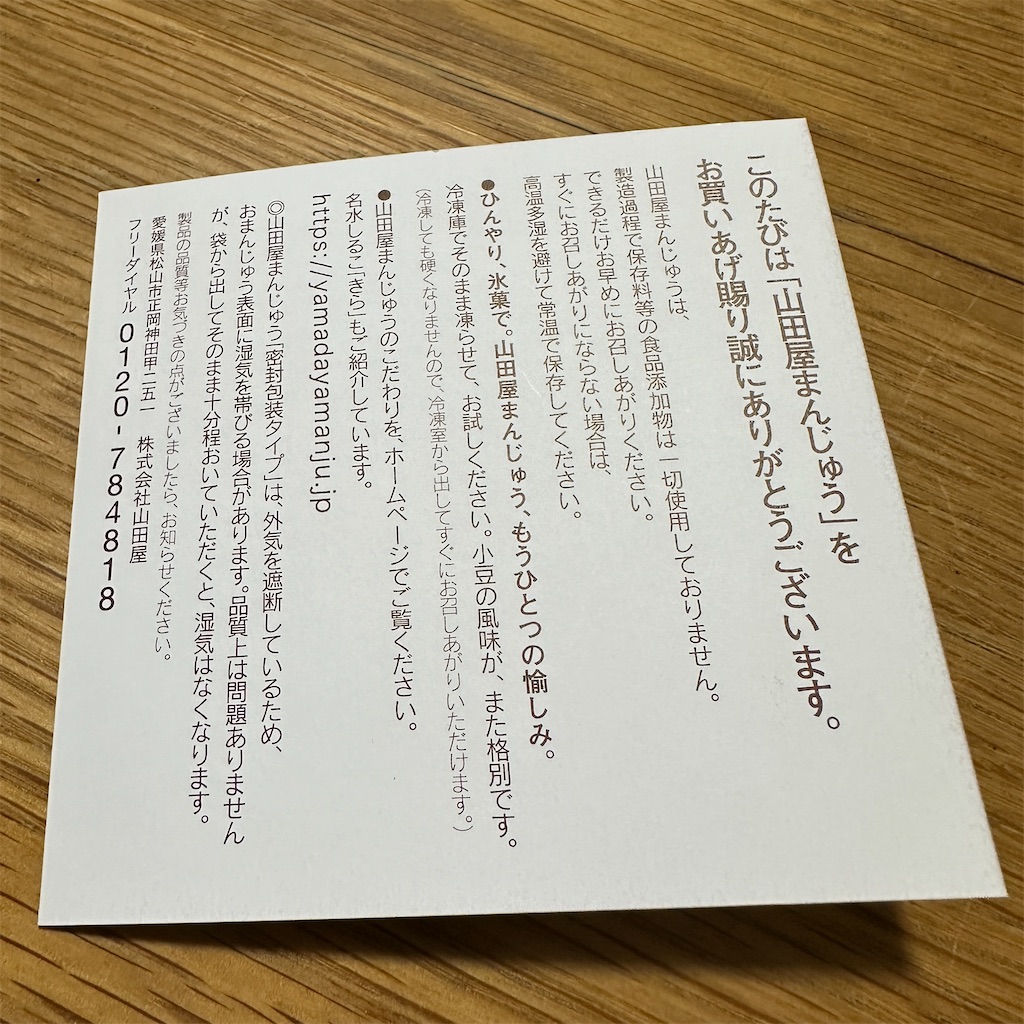 このたびは「山田屋まんじゅう」を
お買いあげ賜り誠にありがとうございます。
山田屋まんじゅうは、
製造過程で保存料等の食品添加物は一切使用しておりません。
できるだけお早めにお召しあがりください。
すぐにお召しあがりにならない場合は、
高温多湿を避けて常温で保存してください。
●ひんやり、氷菓で。山田屋まんじゅう、もうひとつの愉しみ。
冷凍庫でそのまま凍らせて、お試しください。小豆の風味が、また格別です。
（冷凍しても硬くなりませんので、冷凍室から出してすぐにお召しあがりいただけます。）
●山田屋まんじゅうのこだわりを、ホームページでご覧ください。
名水しるこ「きら」もご紹介しています。
https://yamadayamanju.jp
◎山田屋まんじゅう「密封包装タイプ」は、外気を遮断しているため、
おまんじゅう表面に湿気を帯びる場合があります。品質上は問題ありません
が、袋から出してそのまま十分程おいていただくと、湿気はなくなります。
製品の品質等お気づきの点がございましたら、お知らせください。
愛媛県松山市正岡神田甲二五一 株式会社山田屋
フリーダイヤル 0120-784818